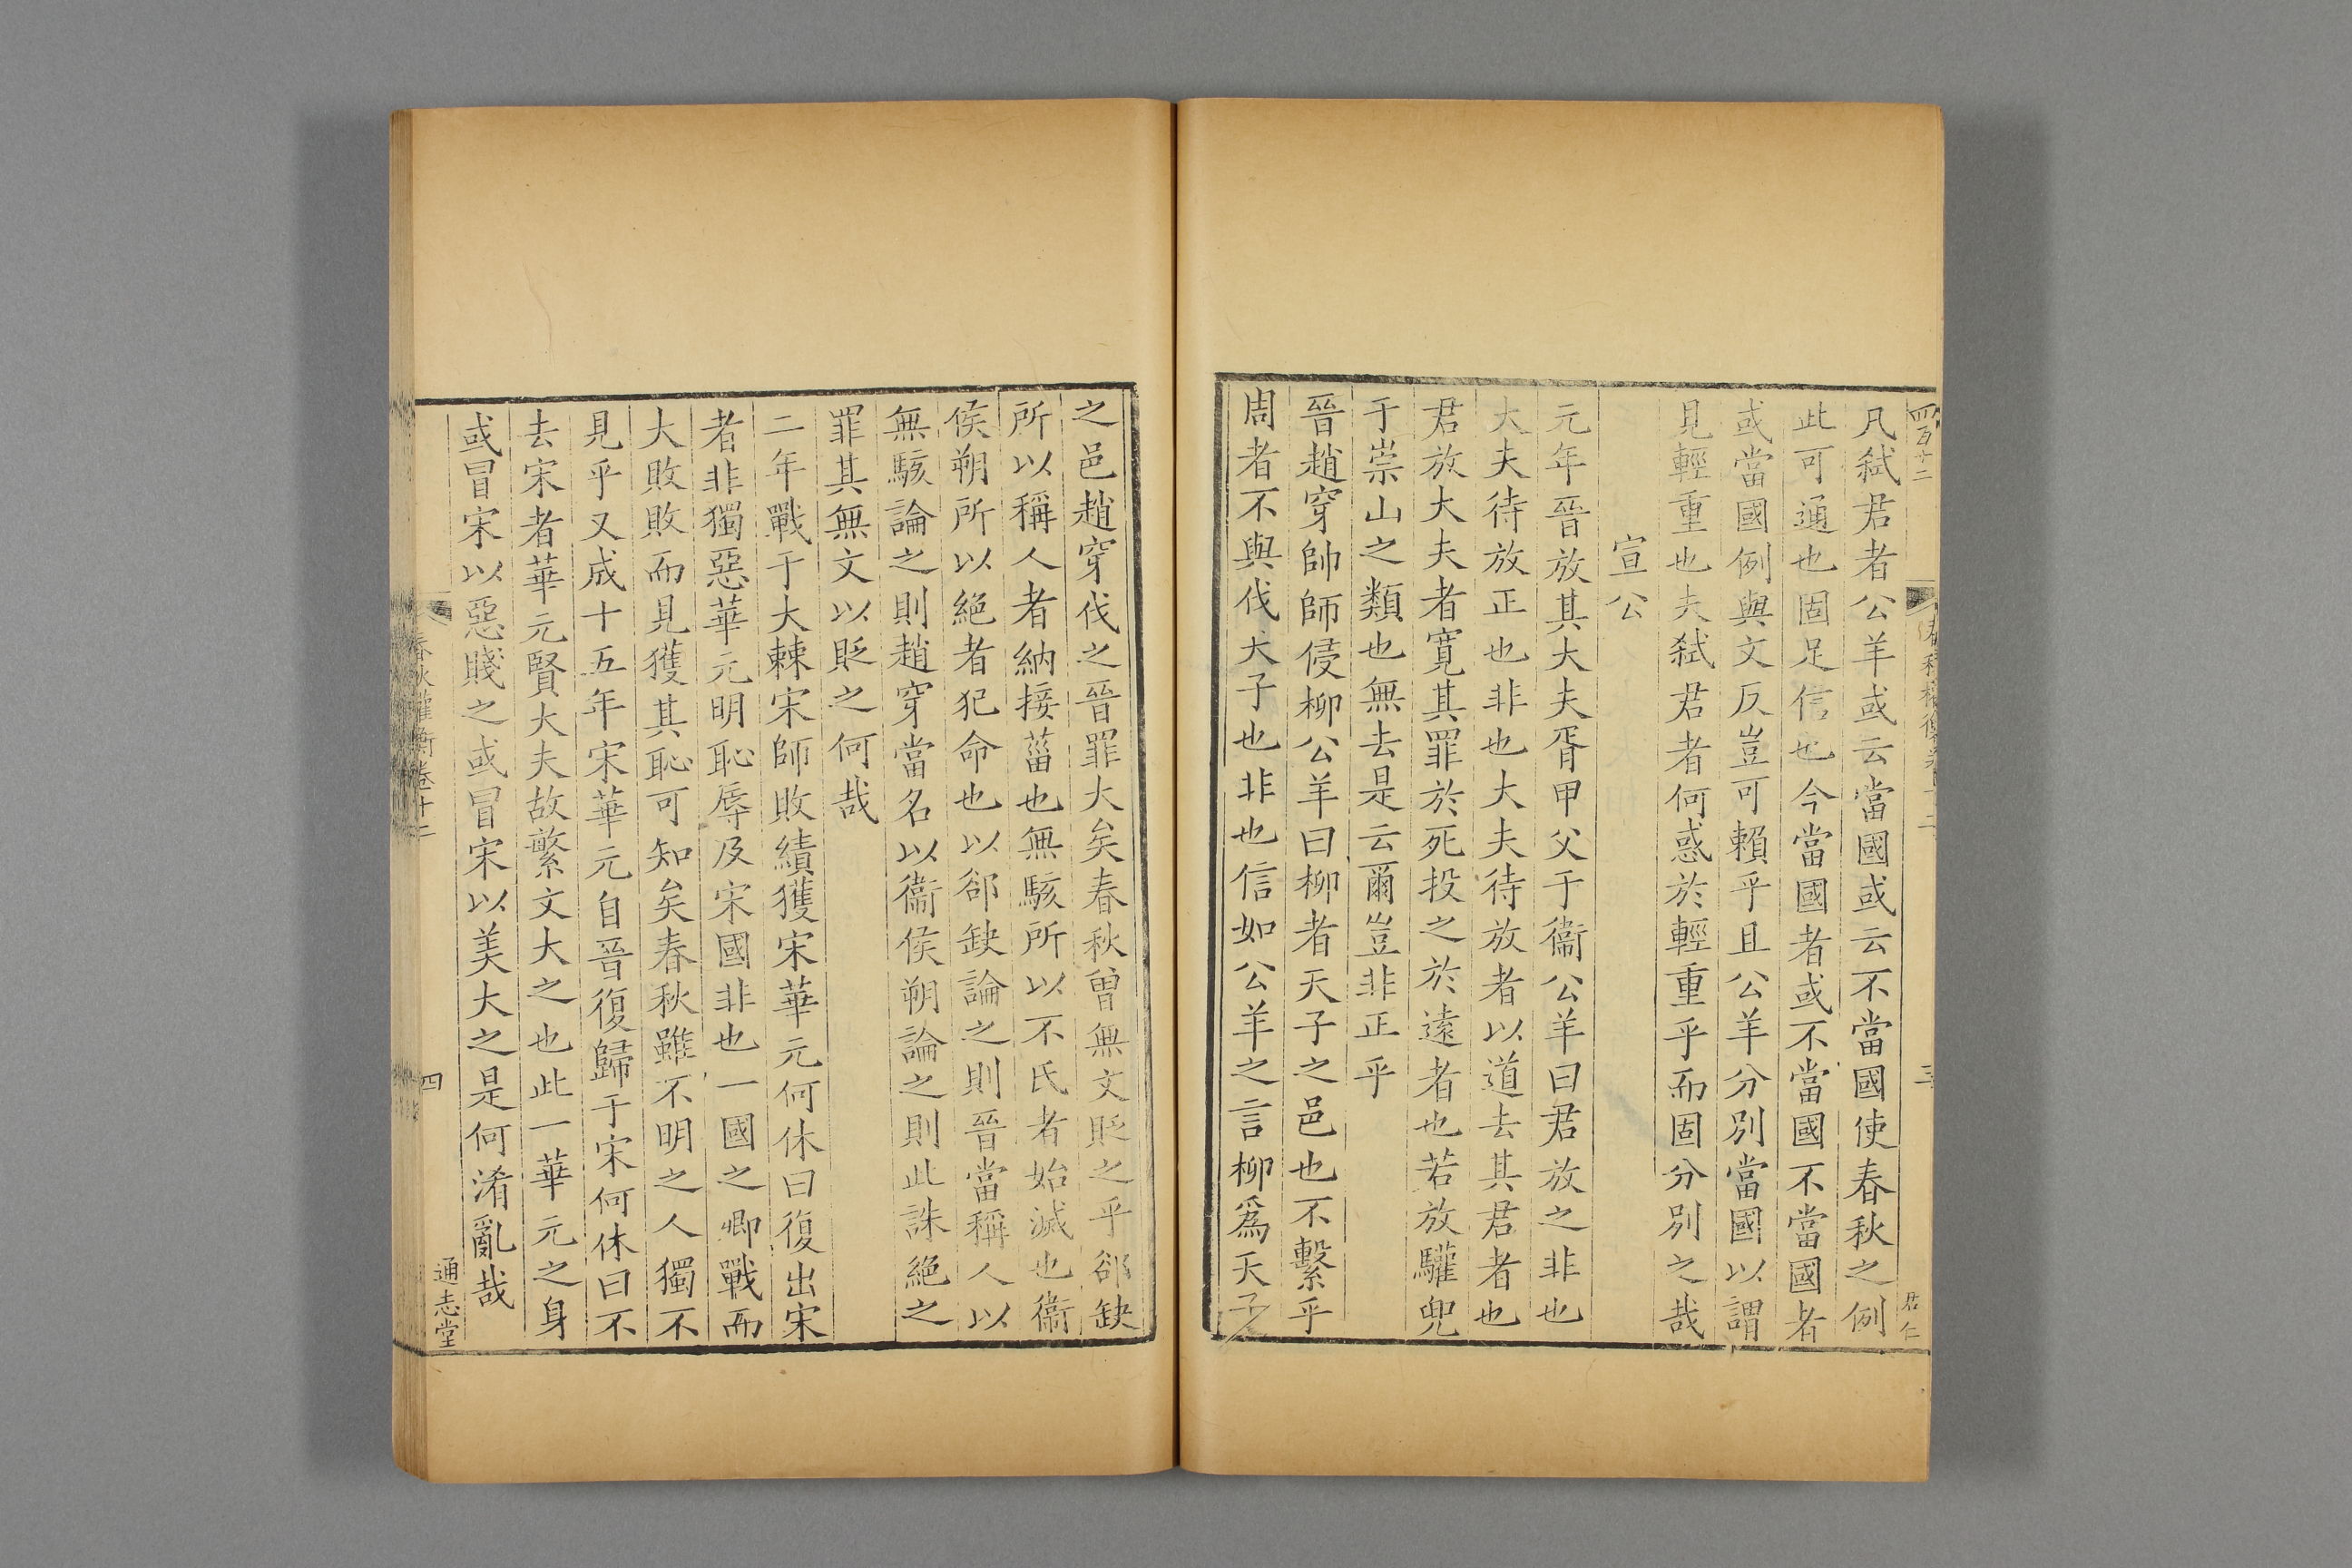 凡弑君者公羊或云當國或云不當國使春秋之例
此可通也固足信也今當國者或不當國不當國者
或當國例與文反豈可賴乎且公羊分別當國以謂
見輕重也夫弑君者何惑於輕重乎而固分別之哉
宣公
元年晉放其大夫胥甲父于衞公羊曰君放之非也
大夫待放正也非也大夫待放者以道去其君者也
君放大夫者寛其罪於死投之於逺者也若放驩兜
于崇山之類也無去是云爾豈非正乎
晉趙穿帥師侵柳公羊曰柳者天子之邑也不繫乎
周者不與伐天子也非也信如公羊之言柳爲天子
之邑趙穿伐之晉罪大矣春秋曾無文貶之乎郤缺
所以稱人者納接菑也無駭所以不氏者始滅也衞
侯朔所以絶者犯命也以郤缺論之則晉當稱人以
無駭論之則趙穿當名以衞侯朔論之則此誅絶之
罪其無文以貶之何哉
二年戰于大棘宋師敗績獲宋華元何休曰復出宋
者非獨惡華元明恥辱及宋國非也一國之卿戰而
大敗敗而見獲其恥可知矣春秋雖不明之人獨不
見乎又成十五年宋華元自晉復歸于宋何休曰不
去宋者華元賢大夫故繁文大之也此一華元之身
或冒宋以惡賤之或冒宋以美大之是何淆亂哉
春秋權衡卷十二
四
通志堂